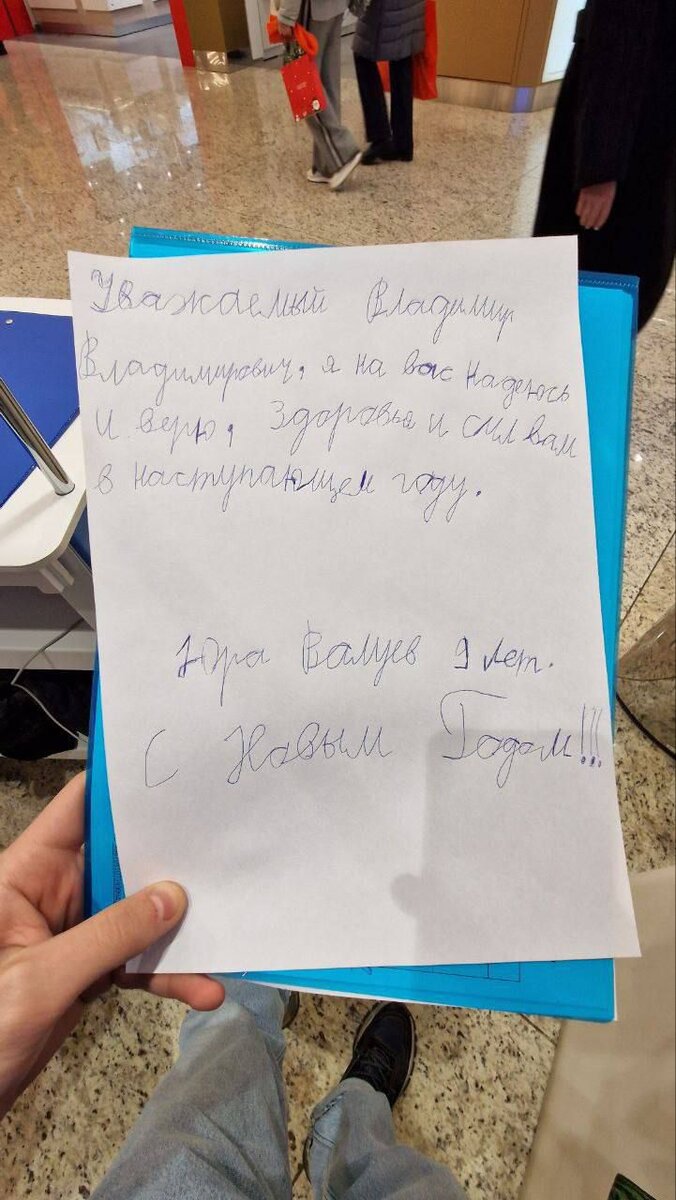 Уважаемый Владимир
Владимирович, я на вас надеюсь
и верю, Здоровья и сил вам
в наступающем году.
Юра Валуев 9 лет.
С Новым Годом!!!